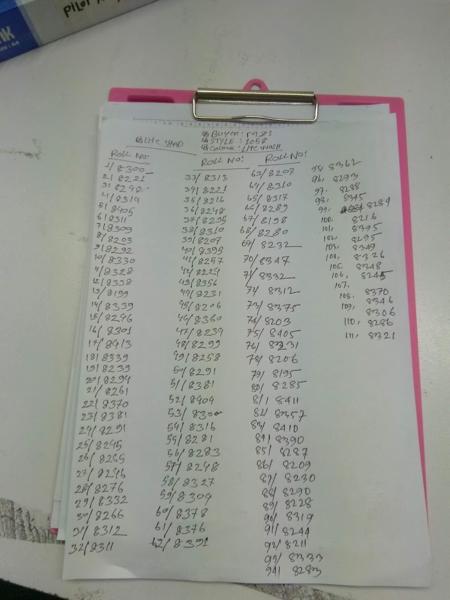 Buyer: 
STYLE: 1058
Colour: LITE WASH
Lite SHAD
ROLL NO:
1/ 8300
2/ 8221
3/ 8298
4/ 8319
5/ 8405
6/ 8311
7/ 8309
8/ 8203
9/ 8292
10/ 8330
11/ 8328
12/ 8358
13/ 8199
14/ 8339
15/ 8296
16/ 8301
17/ 8413
18/ 8339
19/ 8239
20/ 8294
21/ 8261
22/ 8370
23/ 8381
24/ 8291
25/ 8245
26/ 8265
27/ 8246
28/ 8276
29/ 8332
30/ 8266
31/ 8312
32/ 8311
ROLL NO:
33/ 8313
34/ 8221
35/ 8216
36/ 8248
37/ 8235
38/ 8310
39/ 8207
40/ 8398
41/ 8257
42/ 8229
43/ 8231
45/ 8206
46/ 8360
47/ 8239
48/ 8299
49/ 8258
50/ 8291
51/ 8381
52/ 8404
53/ 8300
54/ 8316
55/ 8281
56/ 8283
57/ 8248
58/ 8327
59/ 8304
60/ 8378
61/ 8376
62/ 8391
ROLL NO:
63/ 8207
64/ 8310
65/ 8317
66/ 8289
67/ 8198
68/ 8280
69/ 8232
70/ 8347
71/ 8332
72/ 8312
73/ 8375
74/ 8203
75/ 8405
76/ 8231
78/ 8206
79/ 8195
80/ 8285
81/ 8411
82/ 8357
83/ 8410
84/ 8390
85/ 8287
86/ 8209
87/ 8230
88/ 8290
89/ 8228
90/ 8319
91/ 8244
92/ 8211
93/ 8333
94/ 8283
95/ 8362
96, 8293
97, 8288
98, 8345
99, 8284
100, 8216
101, 8395
102, 8295
103, 8349
104, 8326
105, 8348
106, 8245
107,
108, 8370
109, 8346
8306
110, 8286
111, 8321